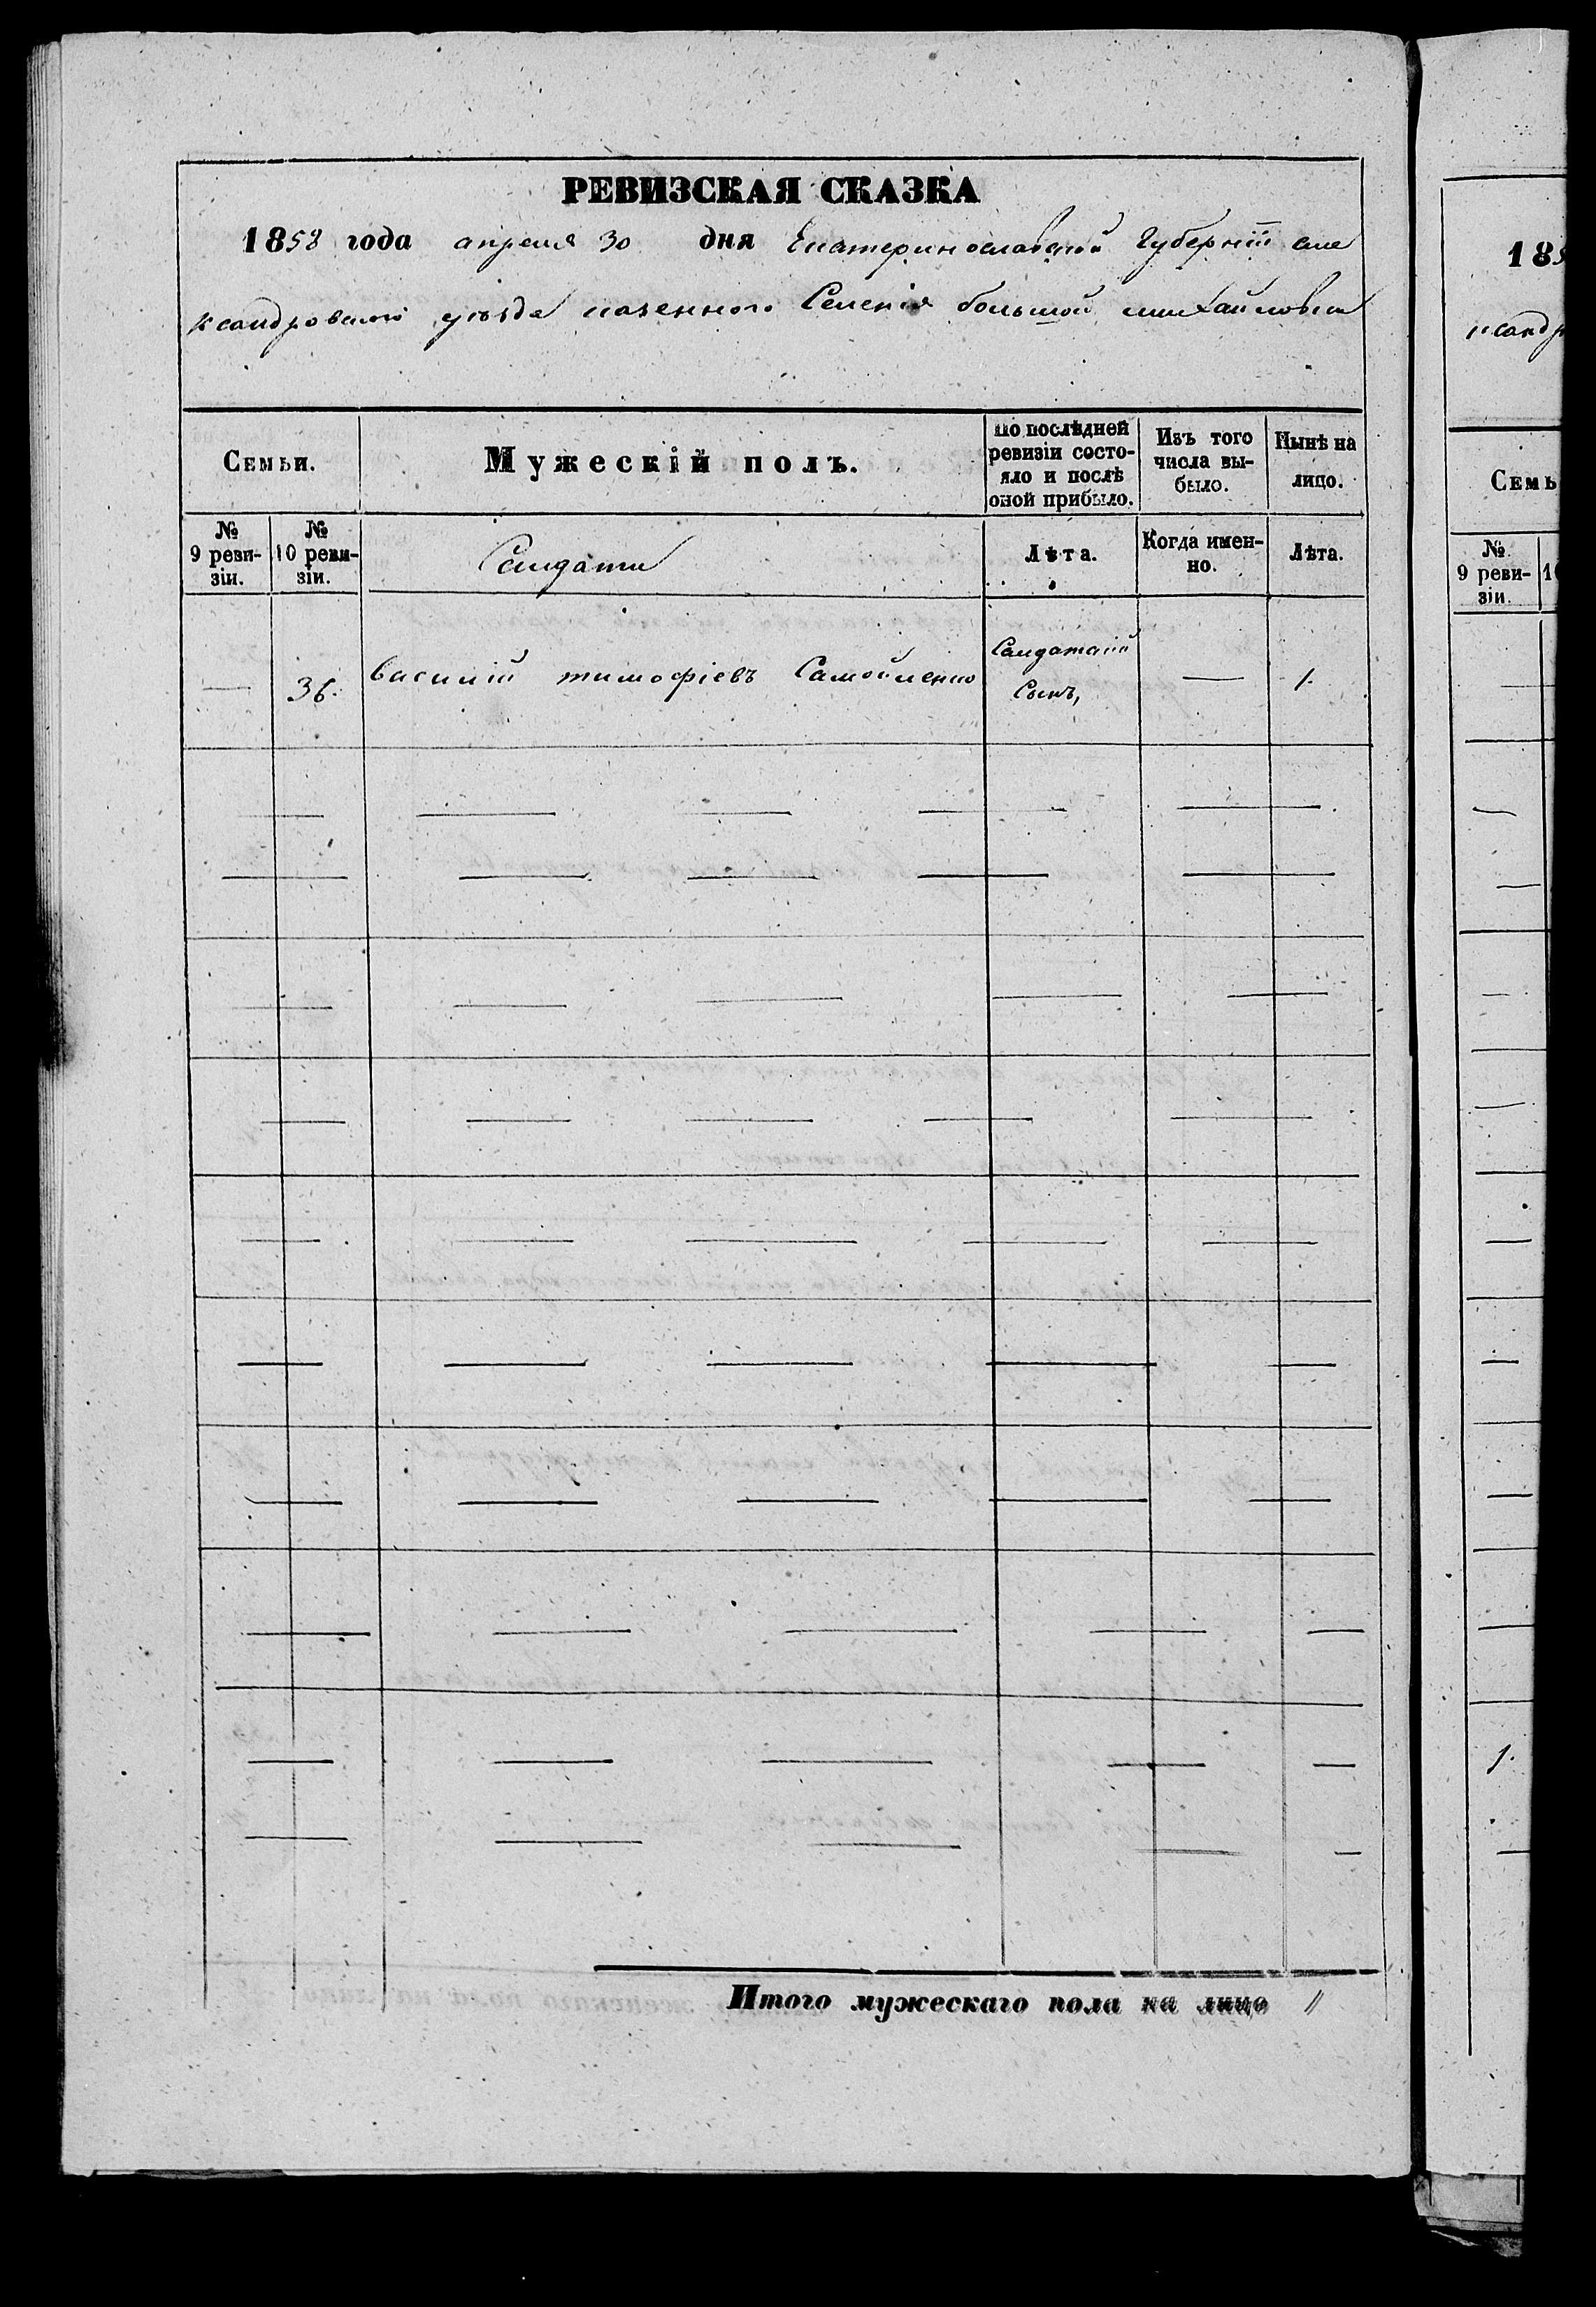 РЕВИЗСКАЯ СКАЗКА
1858 года апреля 30 дня Екатеринославской Губерніи але
ксандровского уѣзда казенного Селенія большой михайловки
Семьи.
Мужескій полъ.
По послѣдней
ревизіи состо-
яло и послѣ
оной прибыло.
Изъ того
числа вы-
было.
Нынѣ на
лицо.
№
9 реви-
зіи.
№
10 реви-
зіи.
Салдати
Лѣта.
Когда имен-
но.
Лѣта.
36. василій тимофіевъ Самойленко
Салдатскій
Сынъ,
1.
Итого мужескаго пола на лицо 1
185
ксандр
Семь
№
9 реви-
зіи.
1
1.